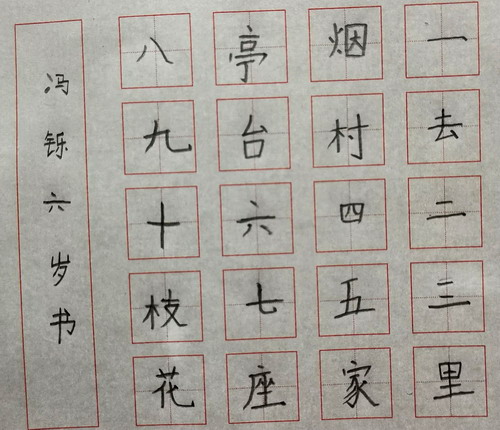 一去二三里
烟村四五家
亭台六七座
八九十枝花
冯铄六岁书